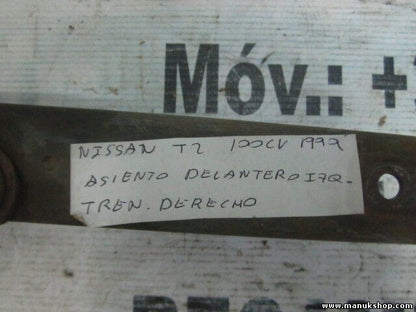 Móv.: +
NISSAN T2 100CV 1992
ASIENTO DELANTERO IZQ.
TREN. DERECHO
www.manukshop.com